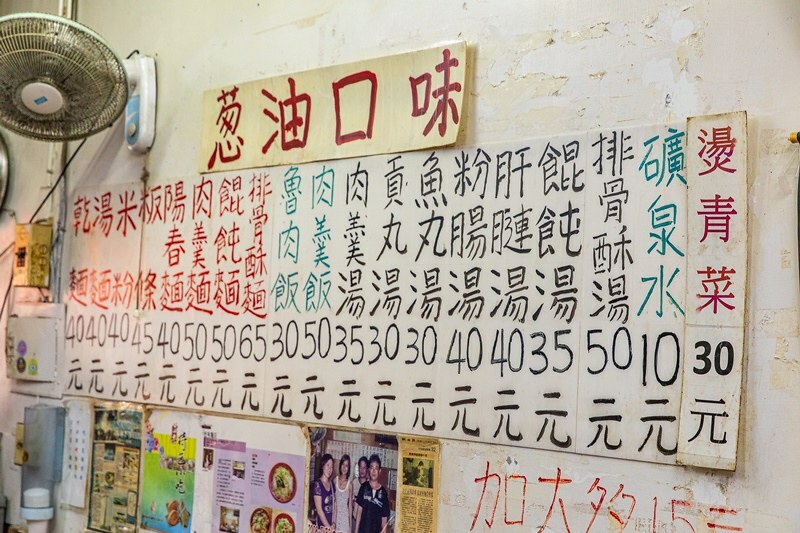 蔥油口味
乾麵40元
湯麵40元
米粉40元
粄條45元
陽春麵40元
肉羹麵50元
餛飩麵50元
排骨酥麵65元
魯肉飯30元
肉羹飯50元
肉羹湯35元
貢丸湯30元
魚丸湯30元
粉腸湯40元
肝腱湯40元
餛飩湯35元
排骨酥湯50元
礦泉水10元
燙青菜30元
加大多15元